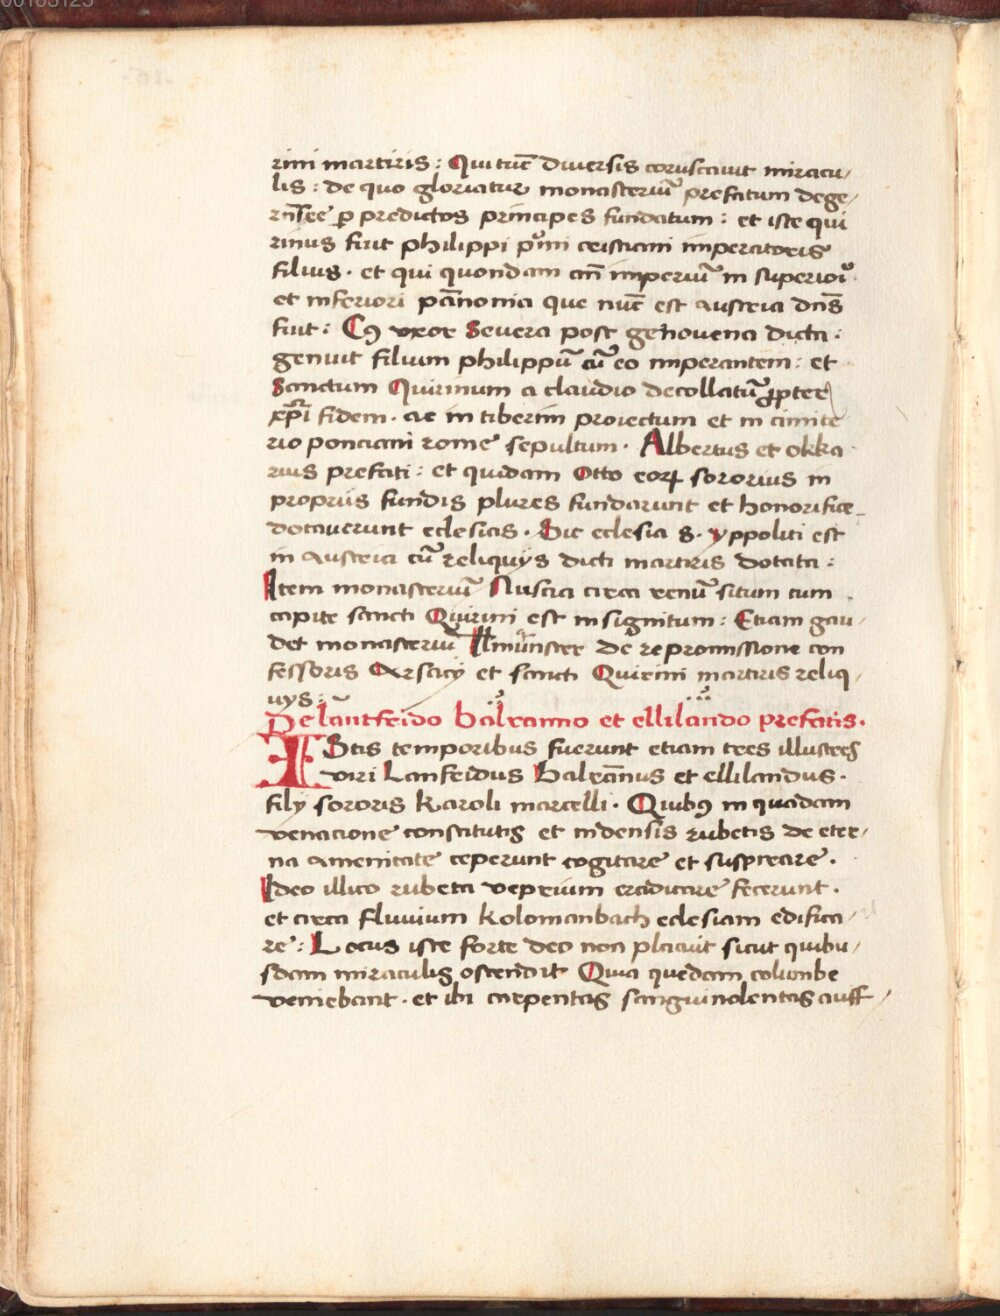 rini martiris : Qui tūc diuersis coruscauit miracu/
lis : de quo gloriatur monasteriū prefatum dege/
rnsee ꝑ predictos principes fundatum : et iste qui
rinus fuit philippi pͥmi cristiani imperatoris
filius · et qui quondam añ imperiū in superiori
et inferiori pānonia que nūc est Austria dn̄s
fuit : Cꝰ uxor Seuera post genouena dicta :
genuit filium philippū cū eo imperantem : et
Sanctum Quirinum a claudio decollatū ꝓpter
xp̄i fidem · ac in tiberim proiectum et in cimite
rio ponciani rome sepultum · Albertus et okka
rius prefati : et quidam Otto eoꝝ sororius in
propriis fundis plures fundarunt et honorifice
dotauerunt eclesias · Sic eclesia S · yppoliti est
in Austria cū reliquiys dicti martiris dotata :
Item monasteriū Nuscia circa renū situm cum
capite sancti Quirini est insignitum : Etiam gau/
det monasteriū Ilmūnster de repromissione con
fessoris Arsacij et sancti Quirini martiris reliq/
uys :
De lantfrido balranno et ellilando prefatis ·
IStis temporibus fuerunt etiam tres illustres
viri Lanfridus Balrānus et ellilandus ·
filij sororis Karoli marcelli · Quibꝰ in quadam
venacione constitutis et in densis rubetis de eter/
na amenitate ceperunt cogitare et suspirare ·
Ideo illico rubeta veprium eradicare fecerunt ·
et circa fluuium kolomanbach eclesiam edifica/
re : Locus iste forte deo non placuit sicut quibu/
sdam miraculis ostendit Quia quedam columbe
veniebant · et ibi carpentas sanguinolentas auff/